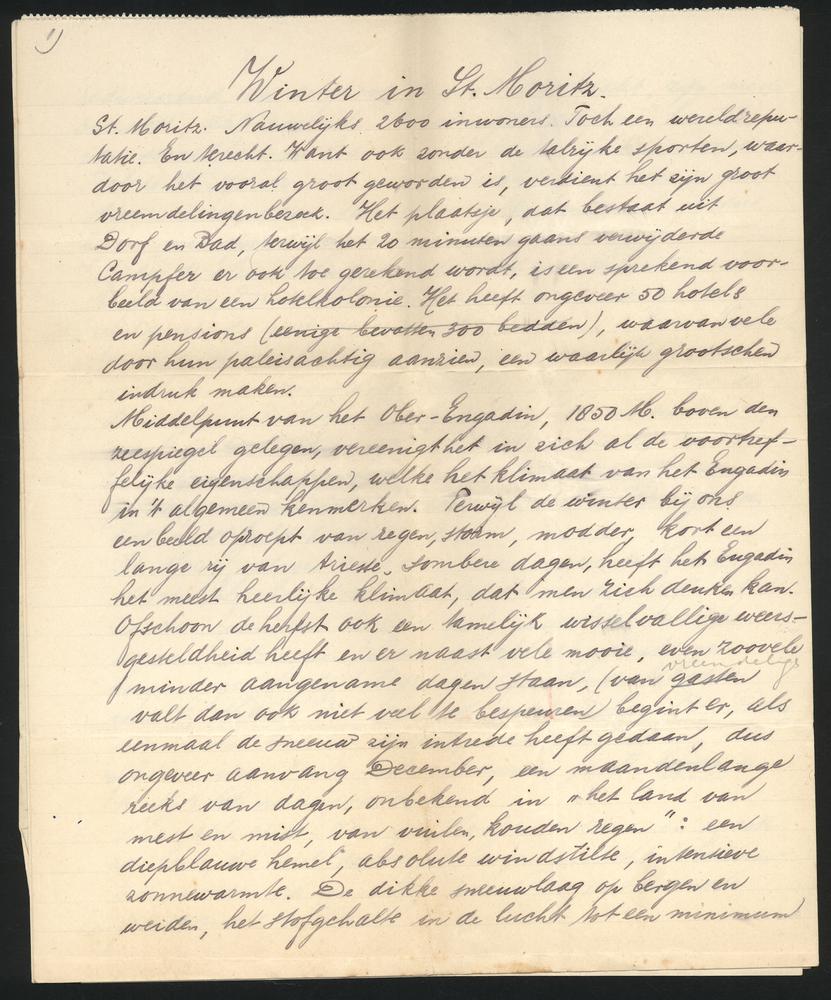 1)
Winter in St. Moritz.
St. Moritz. Nauwelijks 2600 inwoners. Toch een wereldrepu-
tatie. En terecht. Want ook zonder de talrijke sporten, waar-
door het vooral groot geworden is, verdient het zijn groot
vreemdelingenbezoek. Het plaatsje, dat bestaat uit
Dorf en Bad, terwijl het 20 minuten gaans verwijderde
Campfer er ook toe gerekend wordt, is een sprekend voor-
beeld van een hotelkolonie. Het heeft ongeveer 50 hotels
en pensions (eenige bevatten 300 bedden), waarvan vele
door hun paleisachtig aanzien, een waarlijk grootschen
indruk maken.
Middelpunt van het Ober-Engadin, 1850 M. boven den
zeespiegel gelegen, vereenigt het in zich al de voortref-
felijke eigenschappen, welke het klimaat van het Engadin
in 't algemeen kenmerken. Terwijl de winter bij ons
een beeld oproept van regen, storm, modder, kort een
lange rij van trieste, sombere dagen, heeft het Engadin
het meest heerlijke klimaat, dat men zich denken kan.
Ofschoon de herfst ook een tamelijk wisselvallige weers-
gesteldheid heeft en er naast vele mooie, even zoovele
vreemdelingen
minder aangename dagen staan, (van gasten
valt dan ook niet veel te bespeuren) begint er, als
eenmaal de sneeuw zijn intrede heeft gedaan, dus
ongeveer aanvang December, een maandenlange
reeks van dagen, onbekend in „het land van
mest en mist, van vuilen, kouden regen": een
diepblauwe hemel, absolute windstilte, intensieve
zonnewarmte. De dikke sneeuwlaag op bergen en
weiden, het stofgehalte in de lucht tot een minimum